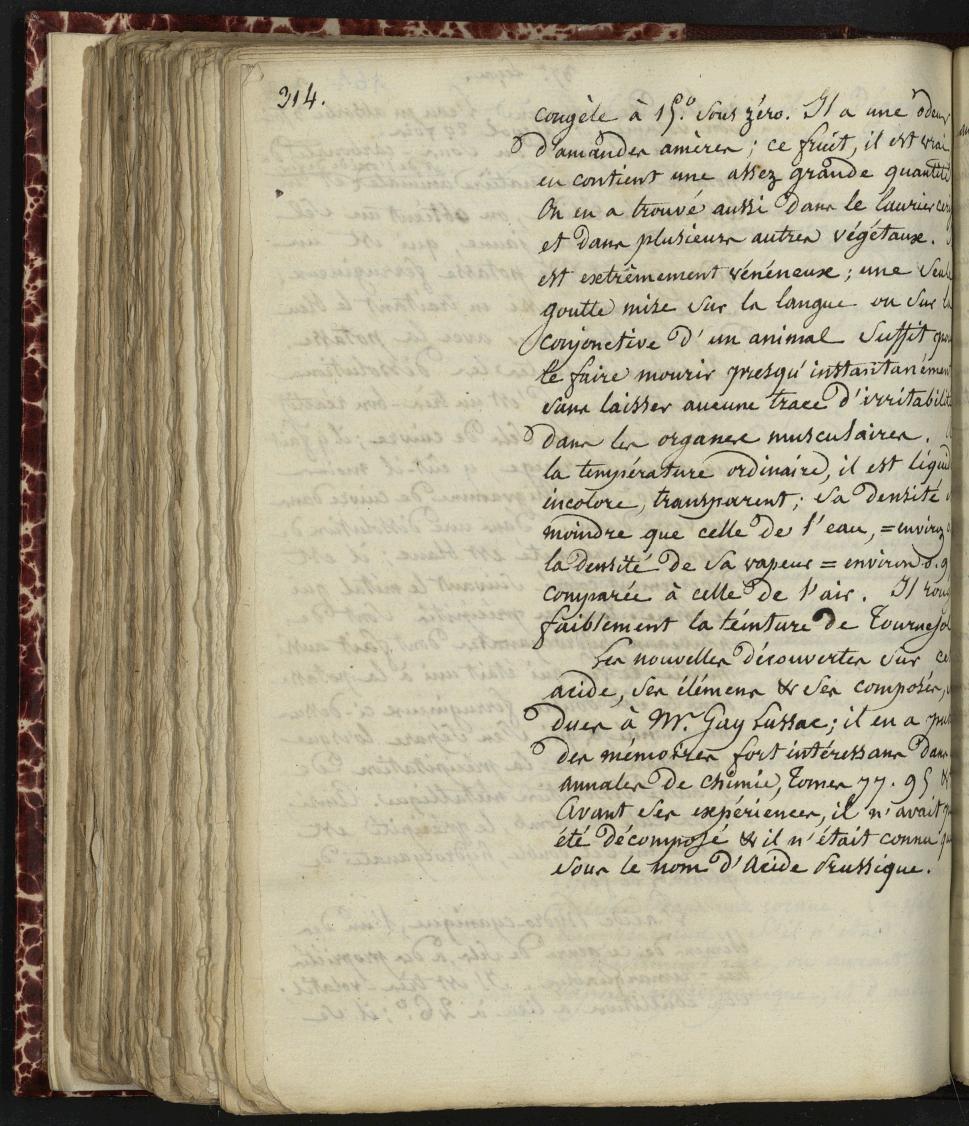 314.
congèle à 15.° sous zéro. Il a une odeur
d'amandes amères ; ce fruit, il est vrai
en contient une assez grande quantité
On en a trouvé aussi dans le laurier
et dans plusieurs autres végétaux.
est extrêmement vénéneux ; une seule
goutte mise sur la langue ou sur la
conjonctive d'un animal suffit
le faire mourir presqu'instantanément
sans laisser aucune trace d'irritabilité
dans les organes musculaires.
la température ordinaire, il est liquide
incolore, transparent ; sa densité
moindre que celle de l'eau, = environ
la densité de sa vapeur = environ 0.9
comparée à celle de l'air. Il roug
faiblement la teinture de Tournesol
Les nouvelles découvertes sur cet
acide, ses élémens & ses composés,
dues à Mr. Gay Lussac ; il en a
des mémoires fort intéressans dans
annales de chimie, Tomes 77. 95 &
Avant ses expériences, il n'avait
été décomposé & il n'était connu
sous le nom d'Acide Prussique.